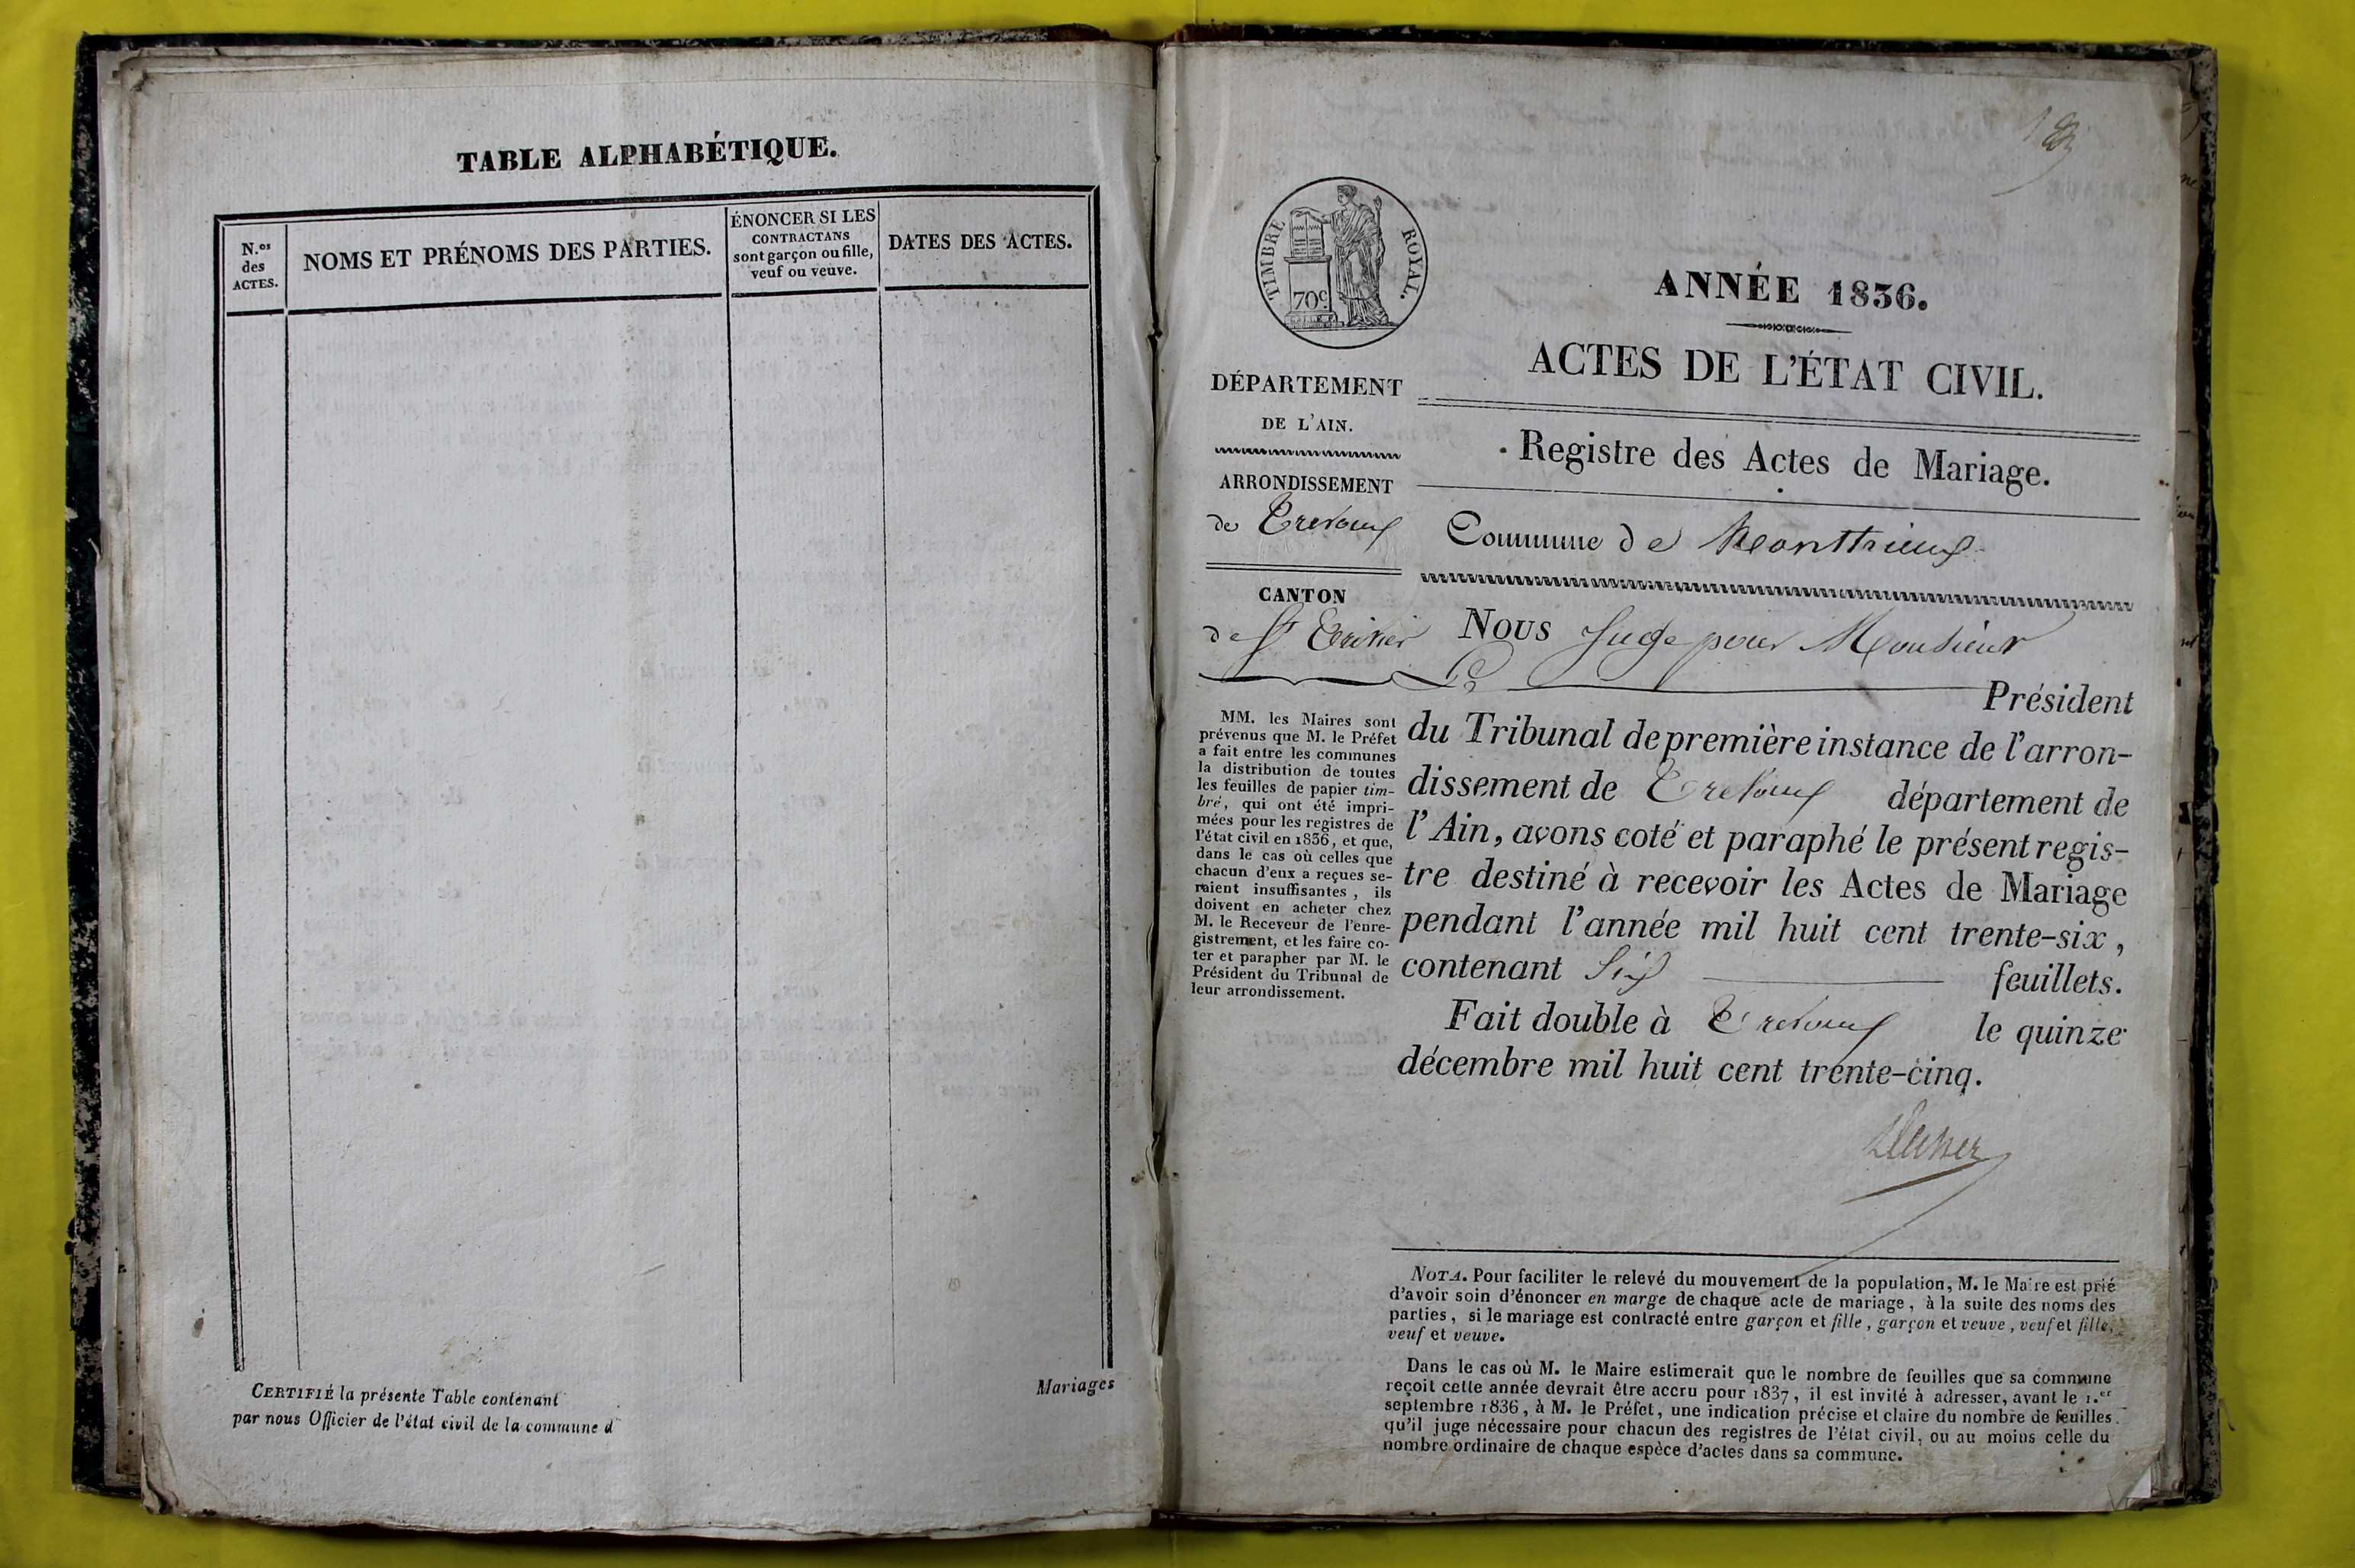 TABLE ALPHABÉTIQUE.
N.os
des
ACTES.
NOMS ET PRÉNOMS DES PARTIES.
ÉNONCER SI LES
CONTRACTANS
sont garçon ou fille,
veuf ou veuve.
DATES DES ACTES.
Mariages
CERTIFIÉ la présente Table contenant
par nous Officier de l'état civil de la commune d
TIMBRE ROYAL.
70c
ANNÉE 1836.
ACTES DE L'ÉTAT CIVIL.
Registre des Actes de Mariage.
DÉPARTEMENT
DE L'AIN.
ARRONDISSEMENT
de Trevoux
Commune de Monthieux
CANTON
de St Trivier
Nous Juge pour Monsieur
Le Président
du Tribunal de première instance de l'arron-
dissement de Trevoux département de
l'Ain, avons coté et paraphé le présent regis-
tre destiné à recevoir les Actes de Mariage
pendant l'année mil huit cent trente-six,
contenant Six feuillets.
Fait double à Trevoux le quinze
décembre mil huit cent trente-cinq.
MM. les Maires sont
prévenus que M. le Préfet
a fait entre les communes
la distribution de toutes
les feuilles de papier tim-
bré, qui ont été impri-
mées pour les registres de
l'état civil en 1836, et que,
dans le cas où celles que
chacun d'eux a reçues se-
raient insuffisantes, ils
doivent en acheter chez
M. le Receveur de l'enre-
gistrement, et les faire co-
ter et parapher par M. le
Président du Tribunal de
leur arrondissement.
NOTA. Pour faciliter le relevé du mouvement de la population, M. le Maire est prié
d'avoir soin d'énoncer en marge de chaque acte de mariage, à la suite des noms des
parties, si le mariage est contracté entre garçon et fille, garçon et veuve, veuf et fille,
veuf et veuve.
Dans le cas où M. le Maire estimerait que le nombre de feuilles que sa commune
reçoit cette année devrait être accru pour 1837, il est invité à adresser, avant le 1.er
septembre 1836, à M. le Préfet, une indication précise et claire du nombre de feuilles
qu'il juge nécessaire pour chacun des registres de l'état civil, ou au moins celle du
nombre ordinaire de chaque espèce d'actes dans sa commune.